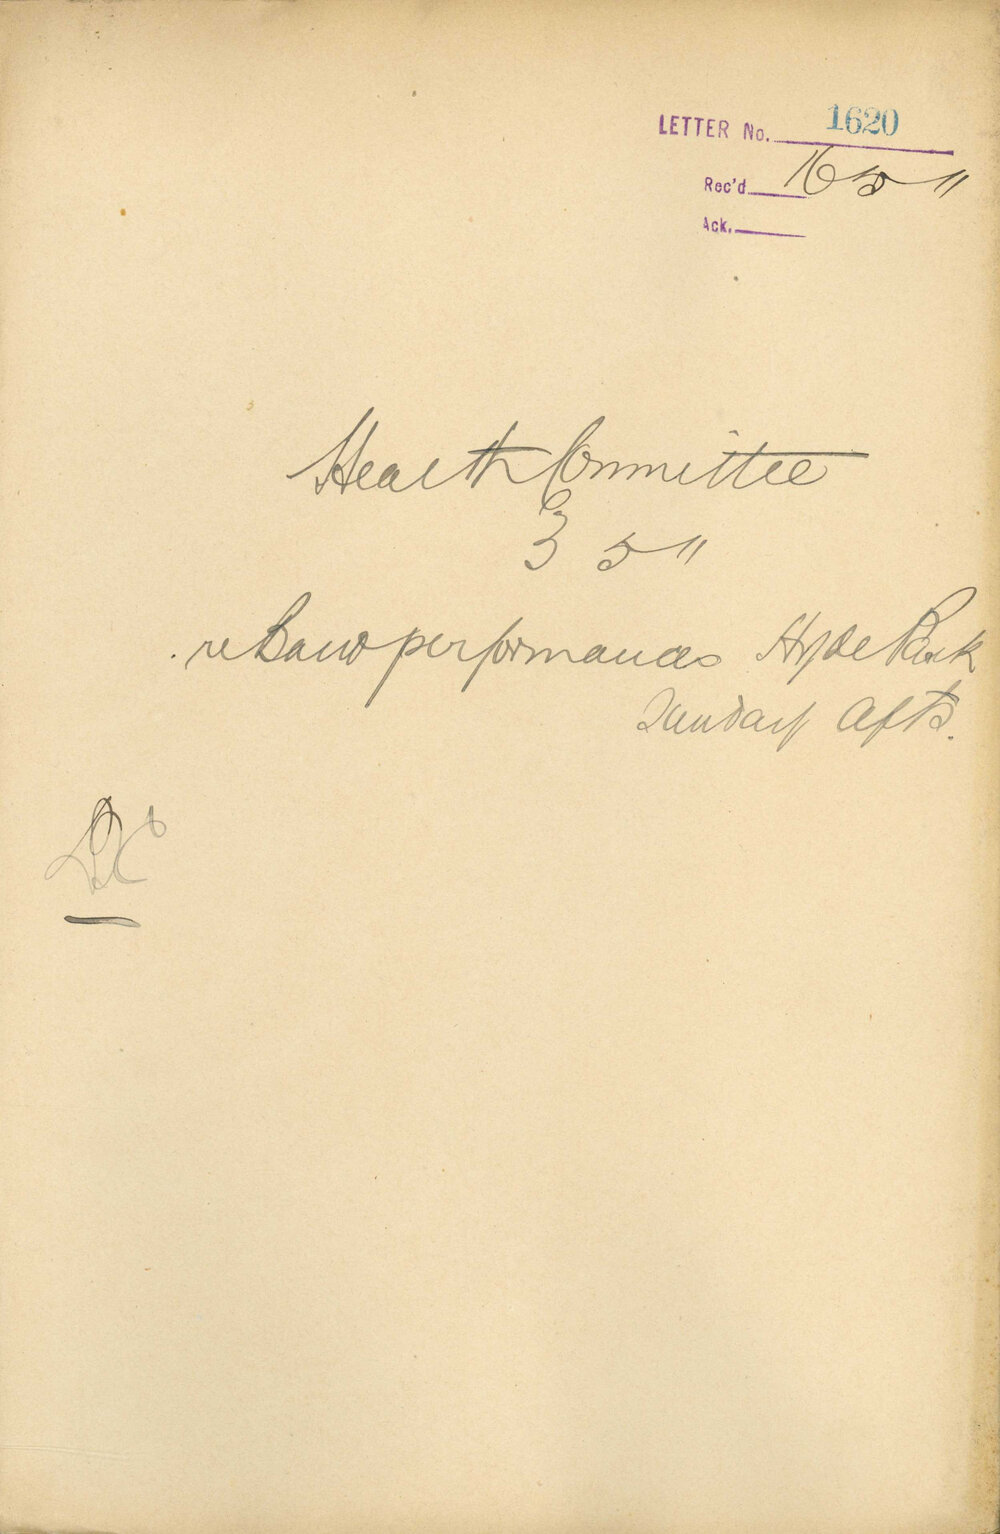 LETTER No. 1620
Rec'd 16 5 11
Ack.
Health Committee
3 5 11
re Band performances Hyde Park
Sunday Afts.